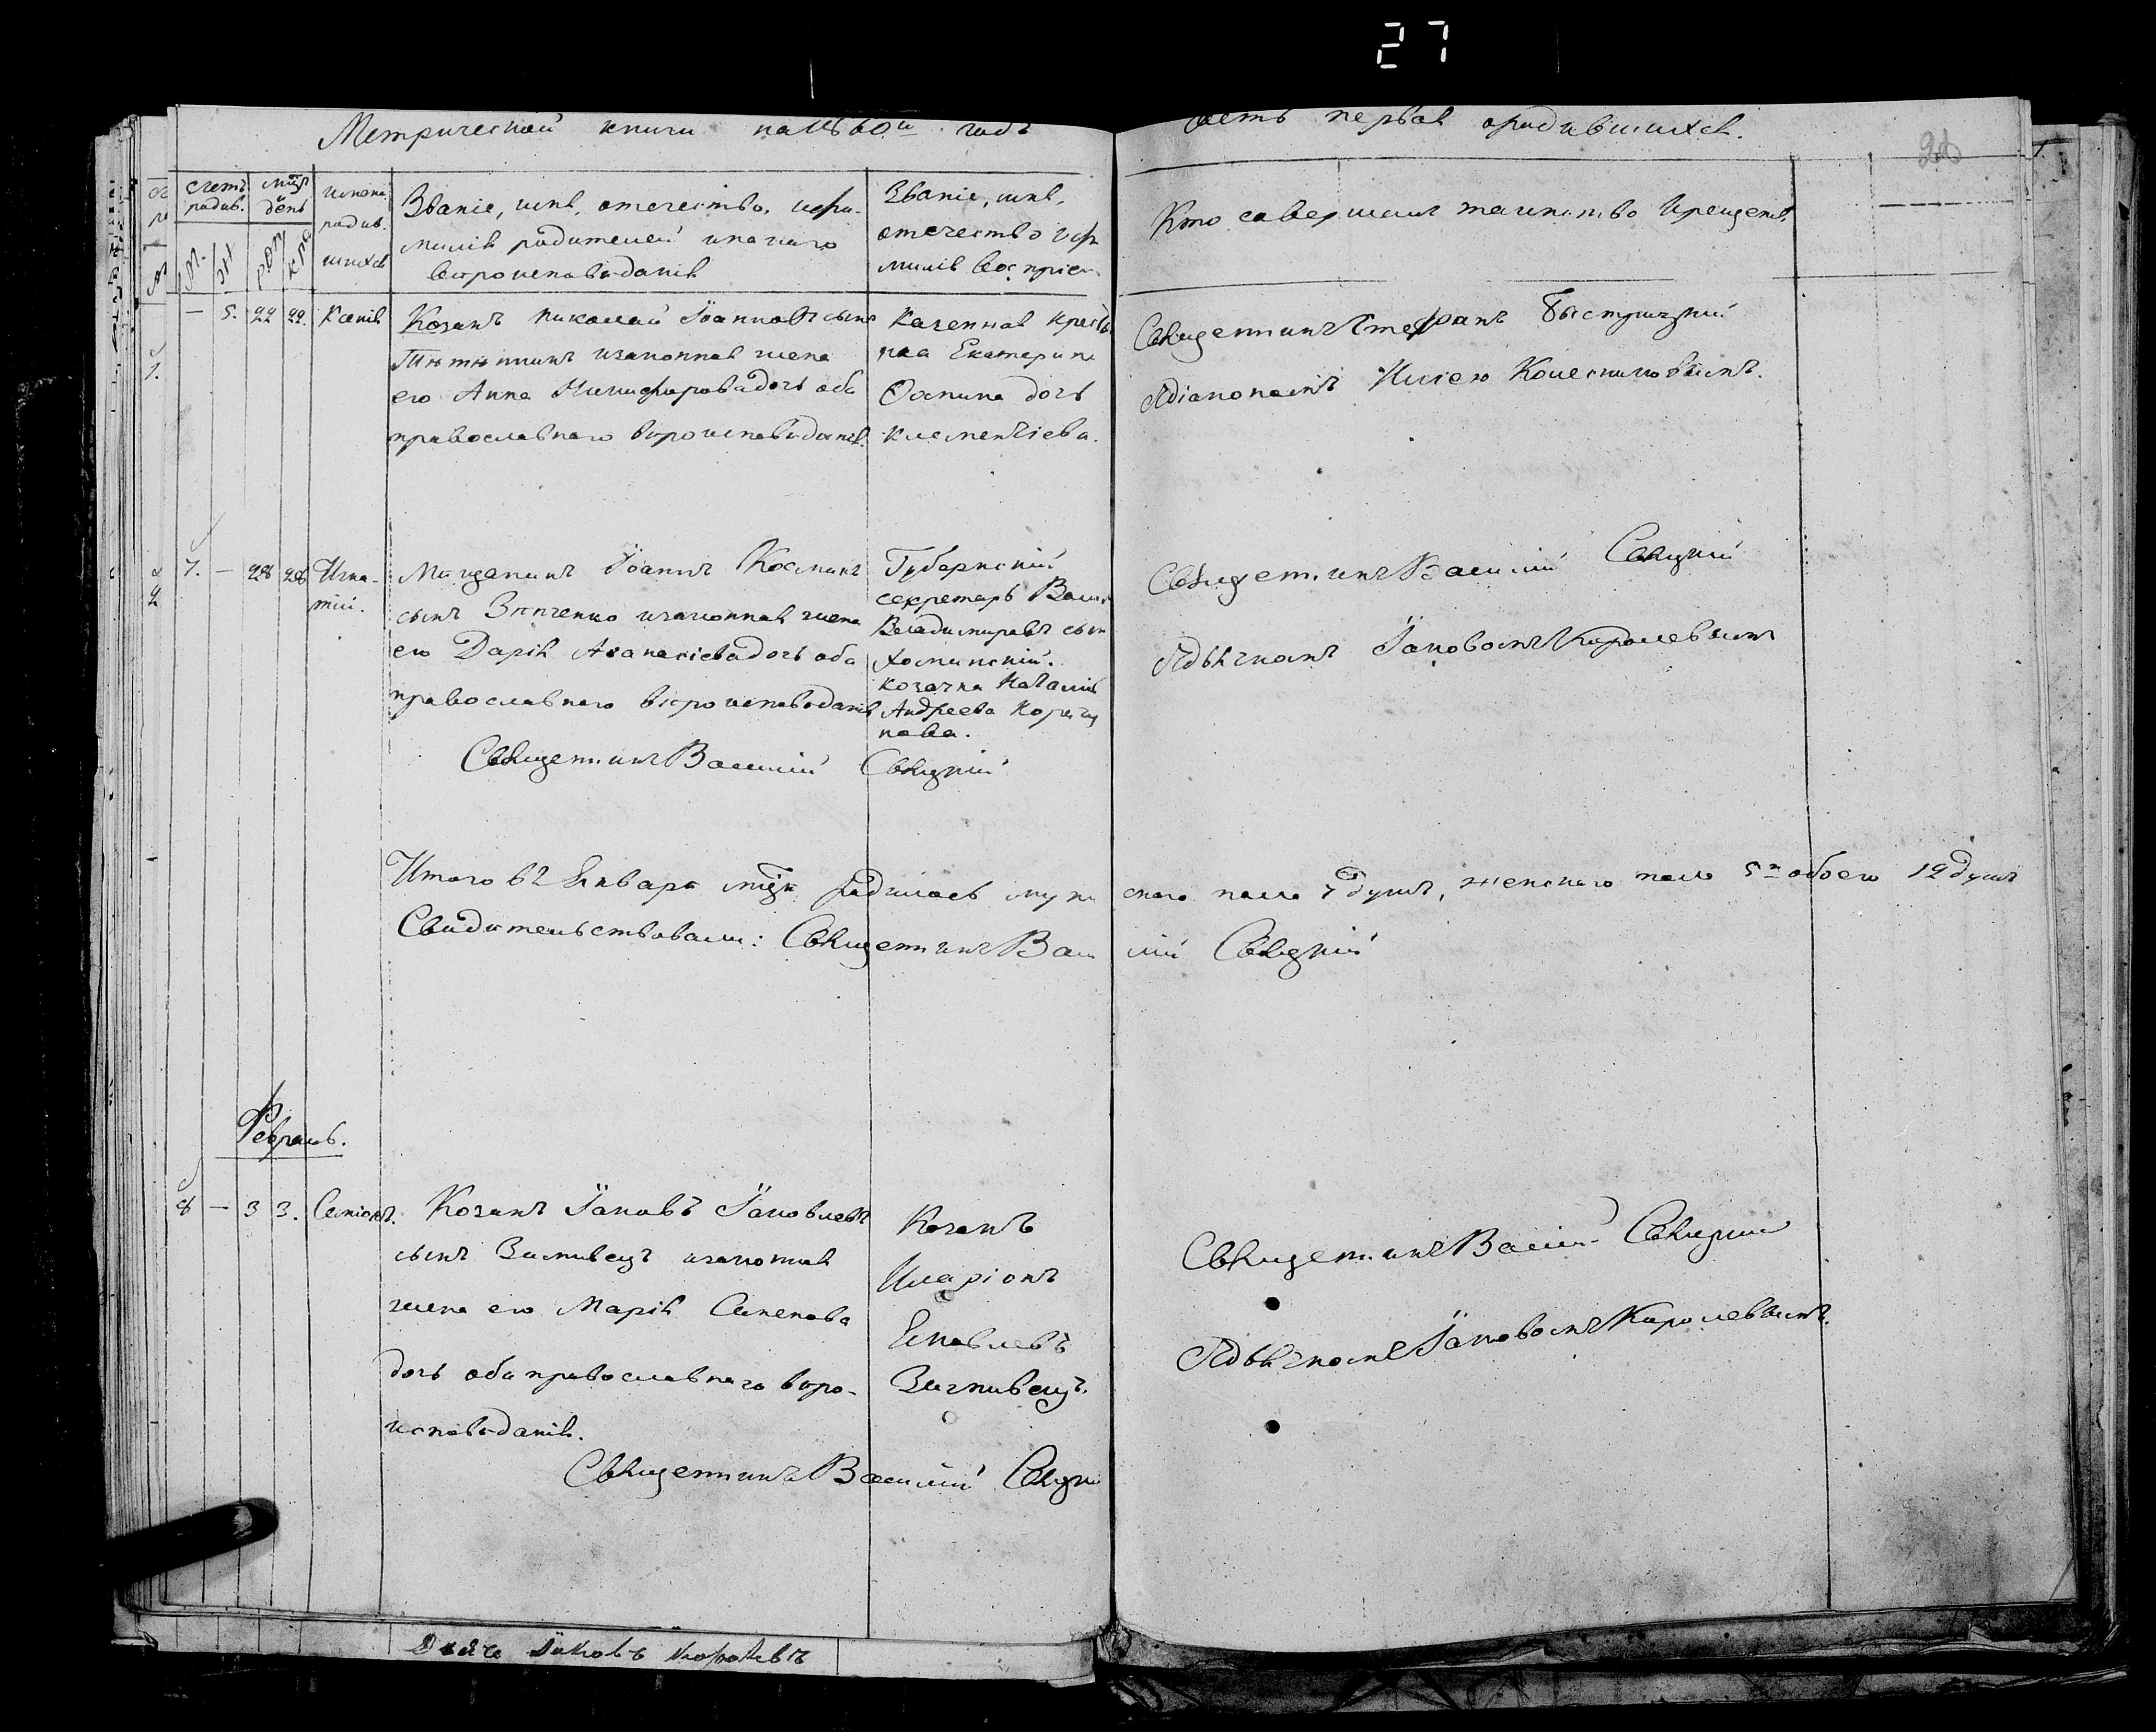 27
Метрической книги на 1860й годъ
часть первая о родившихся.
счетъ
родив.
мцъ
день
имена
родив
шихся
Званіе, имя, отечество, и фа-
милія родителей и какого
вѣроисповѣданія
Званіе, имя,
отечество и фа
милія воспріем
Кто совершилъ таинство крещенія
М.
— 5. 22 22. Ксенія
Козакъ Николай Іоанновъ сынъ
законная жена
его Анна Никифорова дочь оба
православнаго вѣроисповѣданія.
Казенная крестья
нка Екатерина
Осипина дочь
Священникъ Стефанъ Быстрицкій
Діакономъ Колесниковымъ.
7. — 28 28 Игна-
тій.
Мѣщанинъ Іоаннъ Косминъ
сынъ Зинченко и законная жена
его Дарія Аѳанасіева дочь оба
православнаго вѣроисповѣданія
Священникъ Василій Свидскій
Губернскій
секретарь Васил
Владимировъ сын
Хоминскій.
козачка Наталія
Андреева
нова.
Священникъ Василій
Дьячкомъ Іаковомъ Королевымъ
Итого въ Январѣ мцѣ родилось муж
скаго пола 7 душъ, женскаго пола 5 обоего 12 душъ
Свидетельствовали: Священникъ Васи
лій
Февраль.
8 — 3 3. Симіонъ.
Козакъ Іаковъ Іаковлевъ
сынъ и законная
жена его Марія Сименова
дочь оба православнаго вѣро-
исповѣданія.
Священникъ Василій
Козакъ
Иларіонъ
Яковлевъ
Священникъ Василій
Дьячкомъ Іаковомъ Королевымъ.
Дьячъ Іаковъ Королевъ